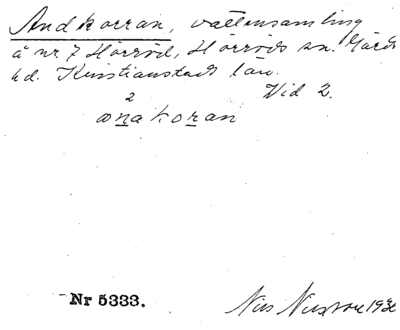 Andkorran, vattensamling
å nr 7 Hörröd, Hörröds sn. Gärds
hd. Kristianstads län.
Vid 2.
2
anakoran
Nr 5333.
Nils Nilsson 1932